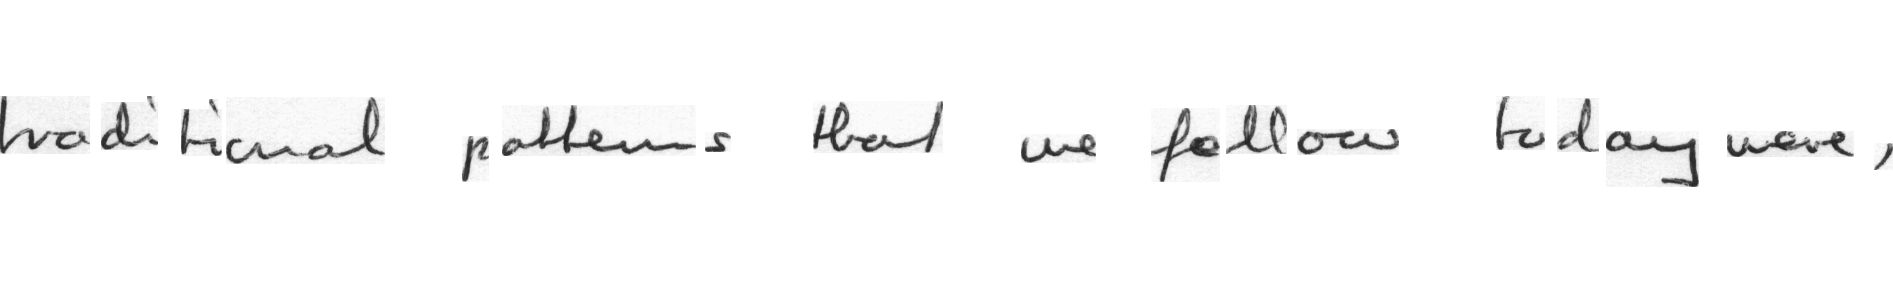 traditional patterns that we follow today were,